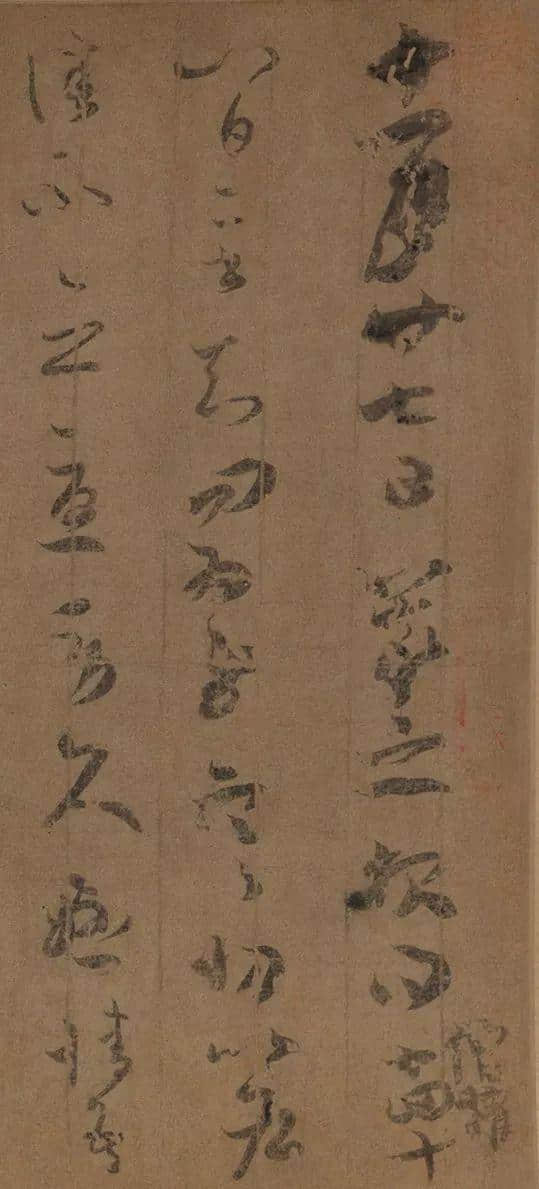 十一月廿七日羲之報得十四十
八日二書知問為慰寒切比各
佳不念憂勞久懸情吾
僧權